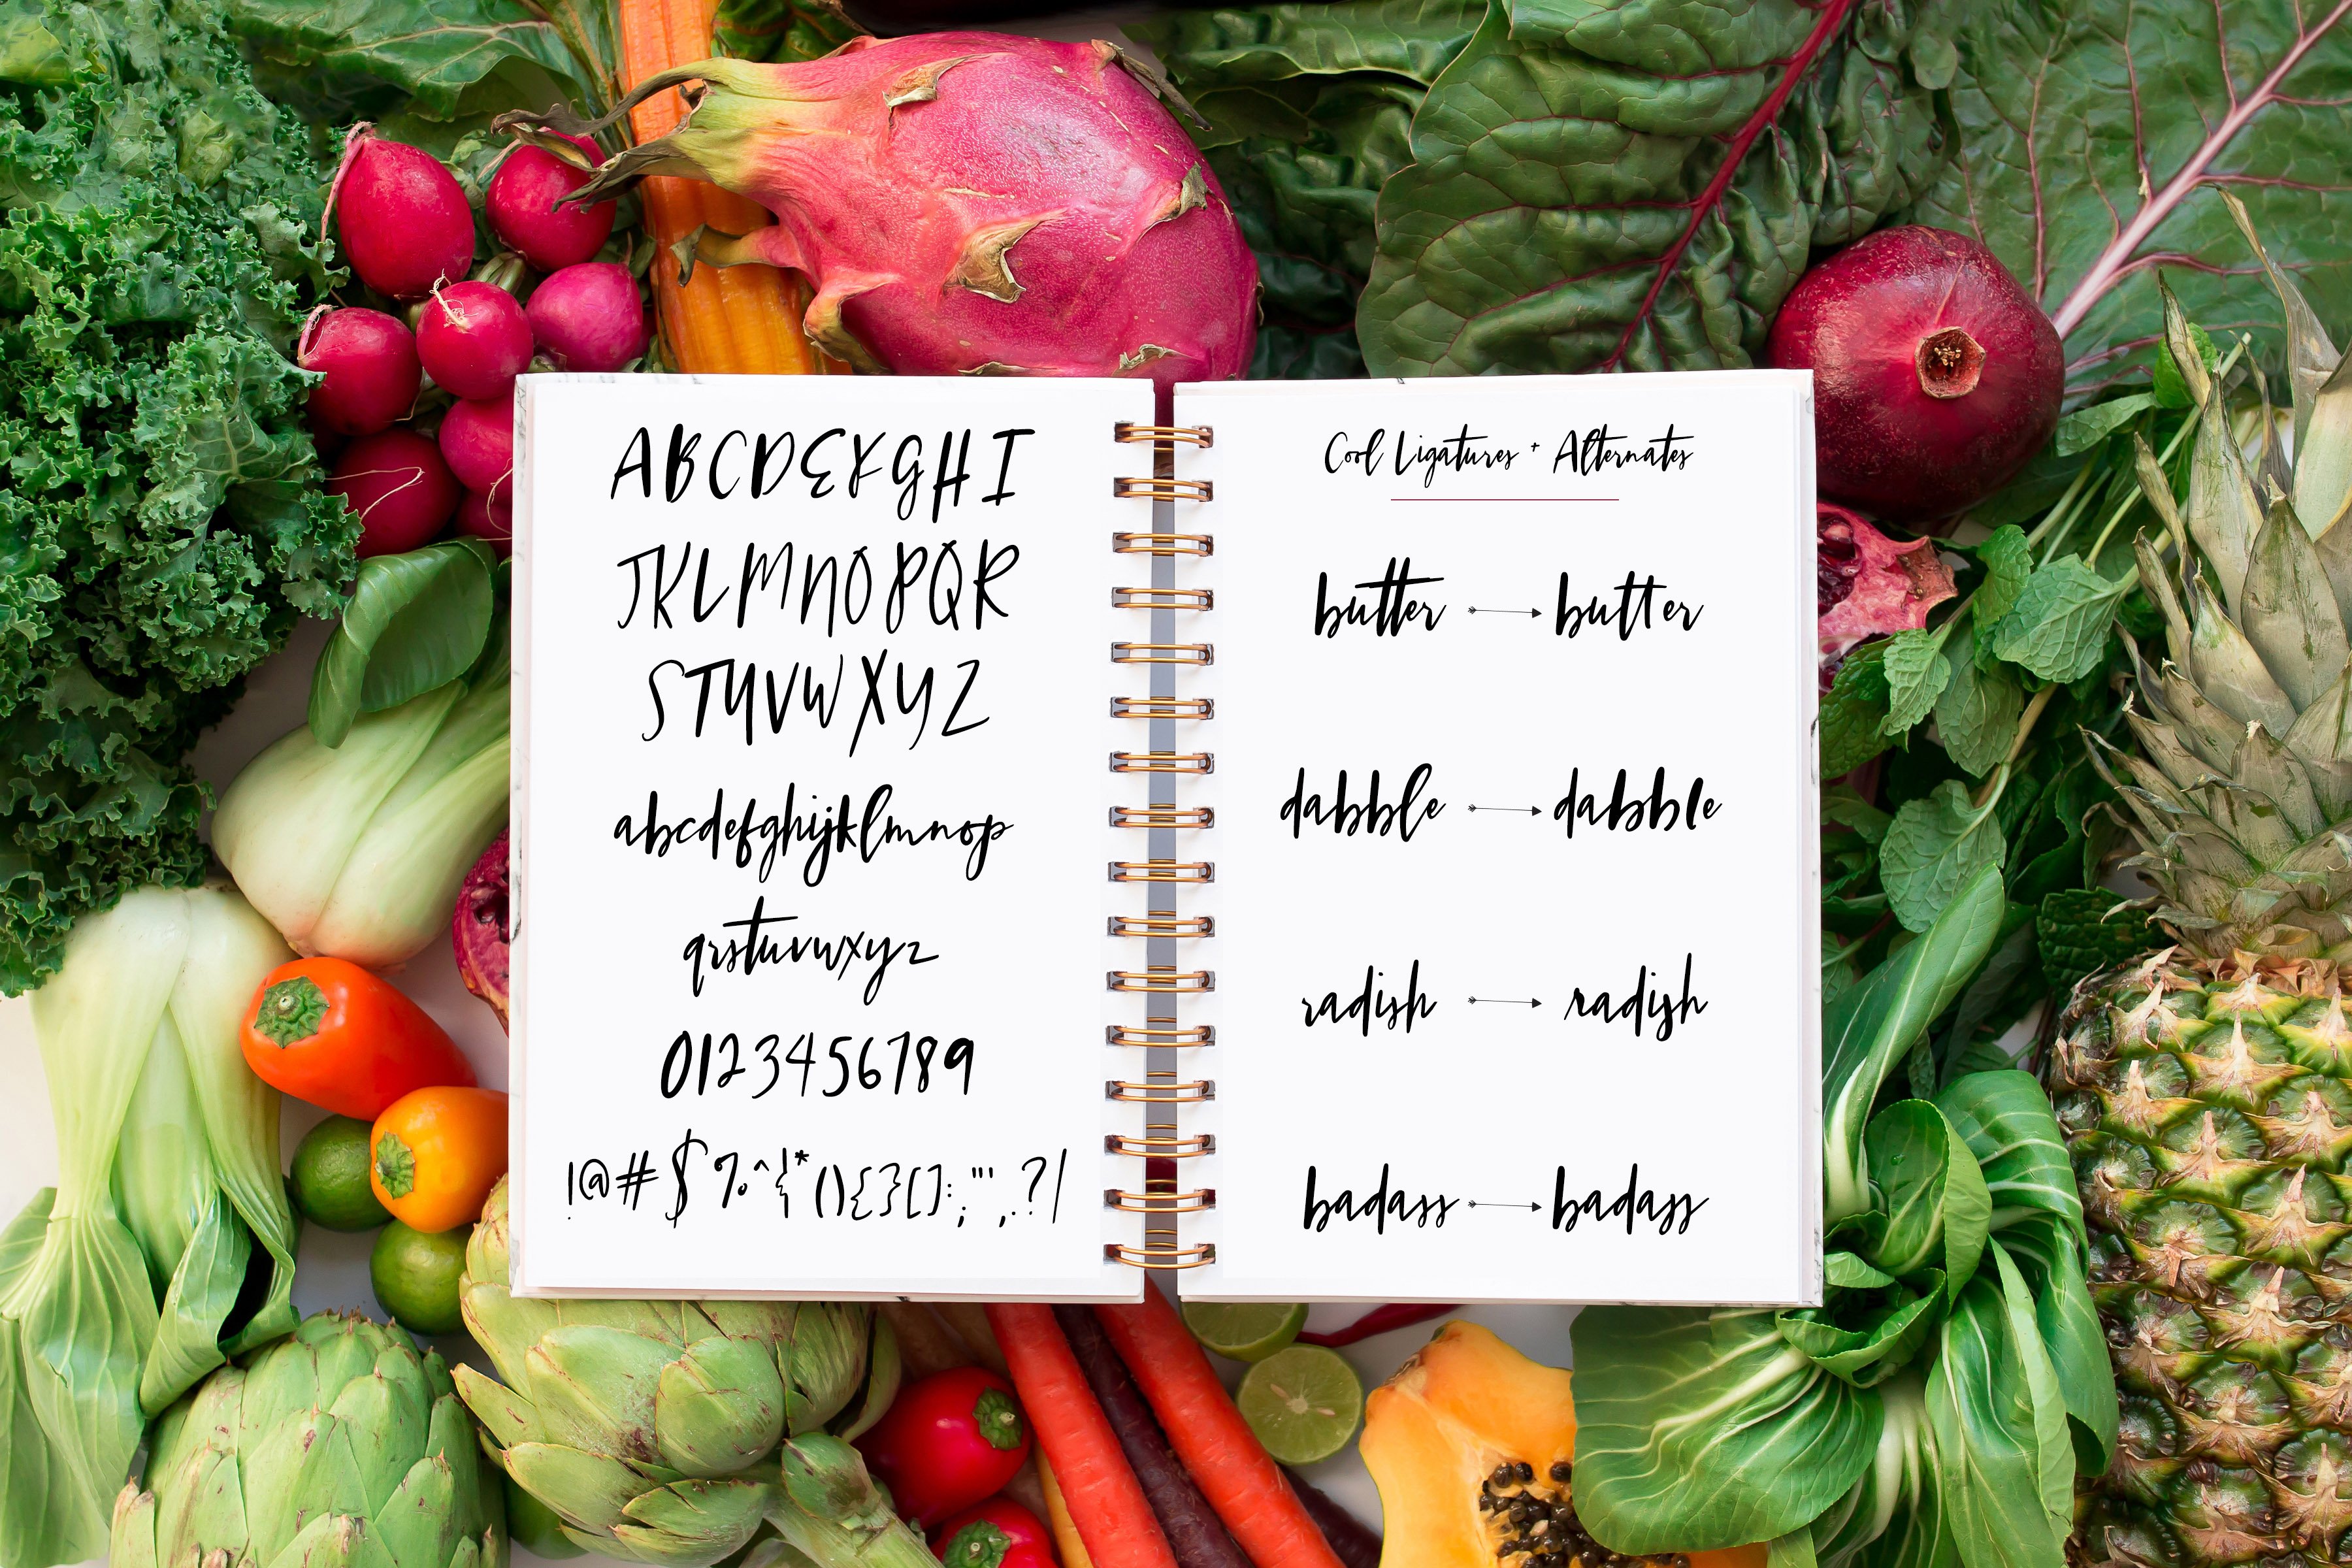 ABCDEFGHI
JKLMNOPQR
STUVWXYZ
abcdefghijklmnop
qrstuvwxyz
0123456789
!@#$%^&*(){}[]:;"',.?/
Cool Ligatures + Alternates
butter → butter
dabble → dabble
radish → radish
badass → badass